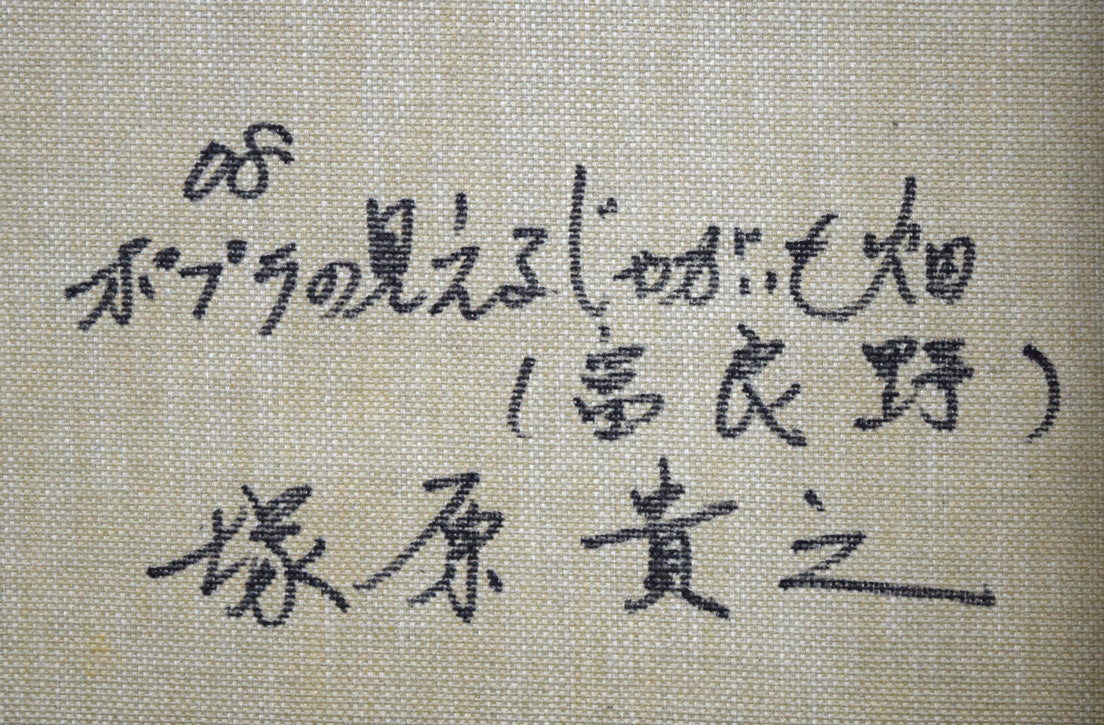 08
ポプラの見えるじゃがいも畑
(富良野)
塚原貴之